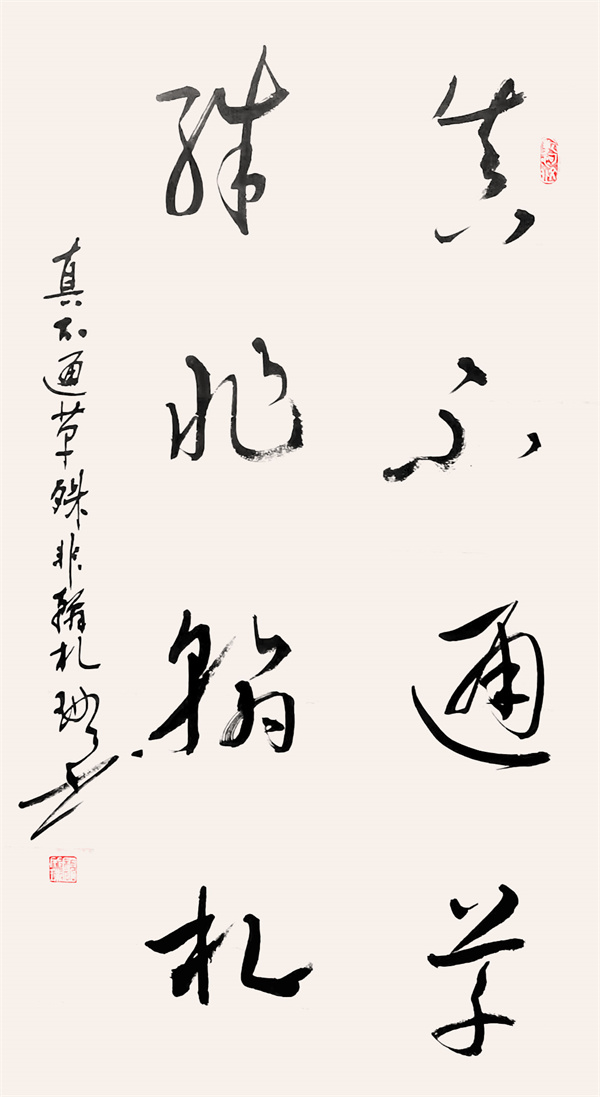 真不通草
殊非翰札
真不通草殊非翰札